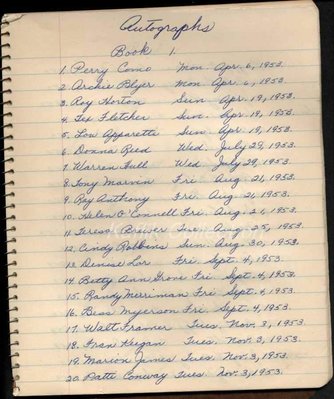 Autographs
Book 1.
1. Perry Como Mon. Apr. 6, 1953.
2. Archie Blyer Mon. Apr. 6, 1953.
3. Roy Horton Sun. Apr. 19, 1953.
4. Tex Fletcher Sun. Apr. 19, 1953.
5. Lou Apparette Sun. Apr. 19, 1953.
6. Donna Reed Wed. July 29, 1953.
7. Warren Hull Wed. July 29, 1953.
8. Tony Marvin Fri. Aug. 21, 1953.
9. Ray Anthony Fri. Aug. 21, 1953.
10. Helen O'Connell Fri. Aug. 21, 1953.
11. Teresa Brewer Tues. Aug. 25, 1953.
12. Cindy Robbins Sun. Aug. 30, 1953.
13. Denise Lor Fri. Sept. 4, 1953.
14. Betty Ann Grove Fri. Sept. 4, 1953.
15. Randy Merriman Fri. Sept. 4, 1953.
16. Bess Myerson Fri. Sept. 4, 1953.
17. Walt Framer Tues. Nov. 3, 1953.
18. Fran Keegan Tues. Nov. 3, 1953.
19. Marion James Tues. Nov. 3, 1953.
20. Patti Conway Tues. Nov. 3, 1953.